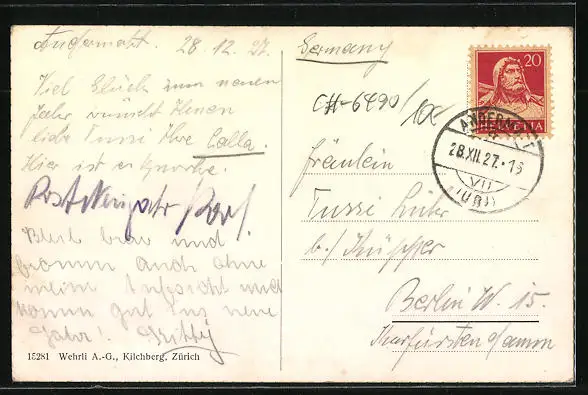 Andermatt. 28.12.27.
Viel Glück zum neuen
Jahr wünscht Ihnen
liebe Tussi Ihre Calla.
Hier ist es
Prosit Neujahr
Bleib brav und
fromm auch ohne
meine Aufsicht und
komm gut ins neue
Jahr!
15281 Wehrli A.-G., Kilchberg, Zürich
Germany
CH-6490/
Fräulein
Tussi
b./ Küpper
Berlin W. 15.
Kurfürstendamm
20
HELVETIA
ANDERMATT
28.XII.27.
VII
(URI)